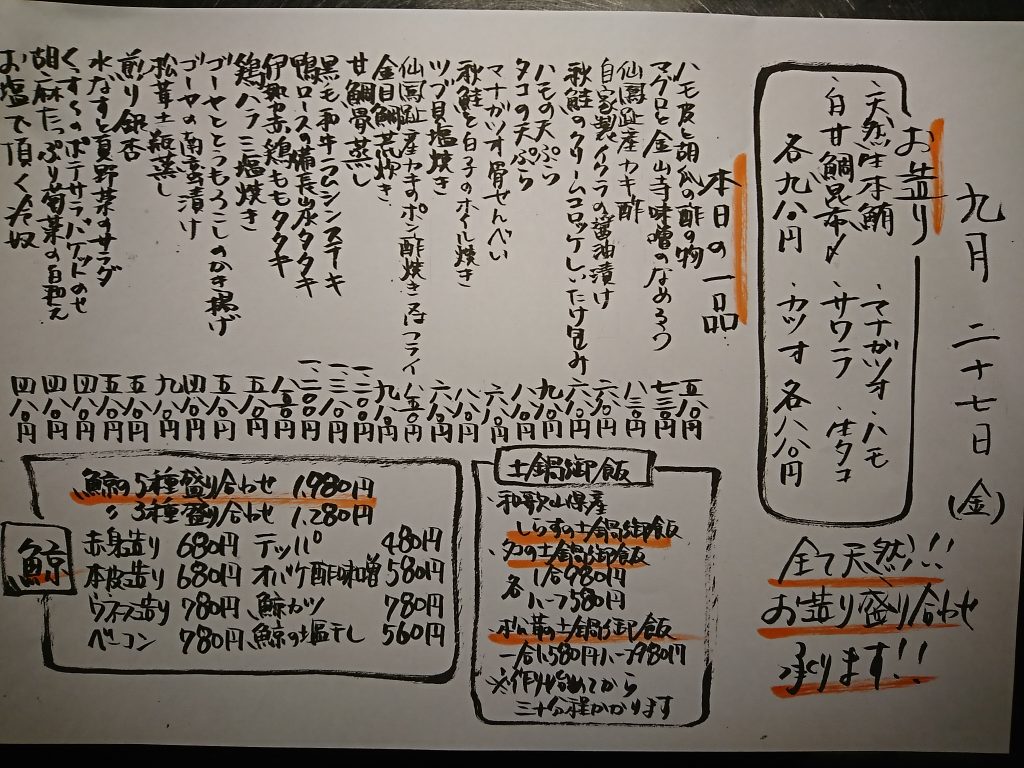 九月 二十七日 (金)
お造り
、天然生本鮪 、マナガツオ 、ハモ
、白甘鯛昆布〆 、サワラ 、生タコ
各九八〇円 、カツオ 各八八〇円
全て天然!!
お造り盛り合わせ
承ります!!
本日の一品
ハモ皮と胡瓜の酢の物 五八〇円
マグロと金山寺味噌のなめろう 七三〇円
仙鳳趾産カキ酢 八三〇円
自家製イクラの醤油漬け 六八〇円
秋鮭のクリームコロッケしいたけ包み 六八〇円
ハモの天ぷら 九八〇円
タコの天ぷら 八八〇円
マナガツオ骨せんべい 六八〇円
秋鮭と白子のホイル焼き 八八〇円
ツブ貝塩焼き 六八〇円
仙鳳趾産カキのポン酢焼きorフライ 八五〇円
金目鯛荒炊き 九八〇円
甘鯛骨蒸し
黒毛和牛ラムシンステキ
鴨ロースの備長山水タタキ
伊勢赤鶏ももタタキ
鶏ハラミ塩焼き 五八〇円
ゴーヤととうもろこしのかき揚げ 五八〇円
ゴーヤの南蛮漬け 四八〇円
松茸土瓶蒸し 九八〇円
煎り銀杏 五八〇円
水なすと夏野菜のサラダ 五八〇円
くすくすのポテサラバケットのせ 四八〇円
胡麻たっぷり菊菜の白和え 四八〇円
お塩で頂く冷奴 四八〇円
土鍋御飯
、和歌山県産
しらすの土鍋御飯
、タコの土鍋御飯
各 1合980円
ハーフ580円
、松茸の土鍋御飯
一合1,580円ハーフ980円
※作り始めてから
三十分程かかります
鯨
鯨の5種盛り合わせ 1,980円
〃 3種盛り合わせ 1,280円
赤身造り 680円 テッパ 480円
本皮造り 680円 オバケ酢味噌 580円
ウネス造り 780円 鯨カツ 780円
ベーコン 780円 鯨の塩干し 560円